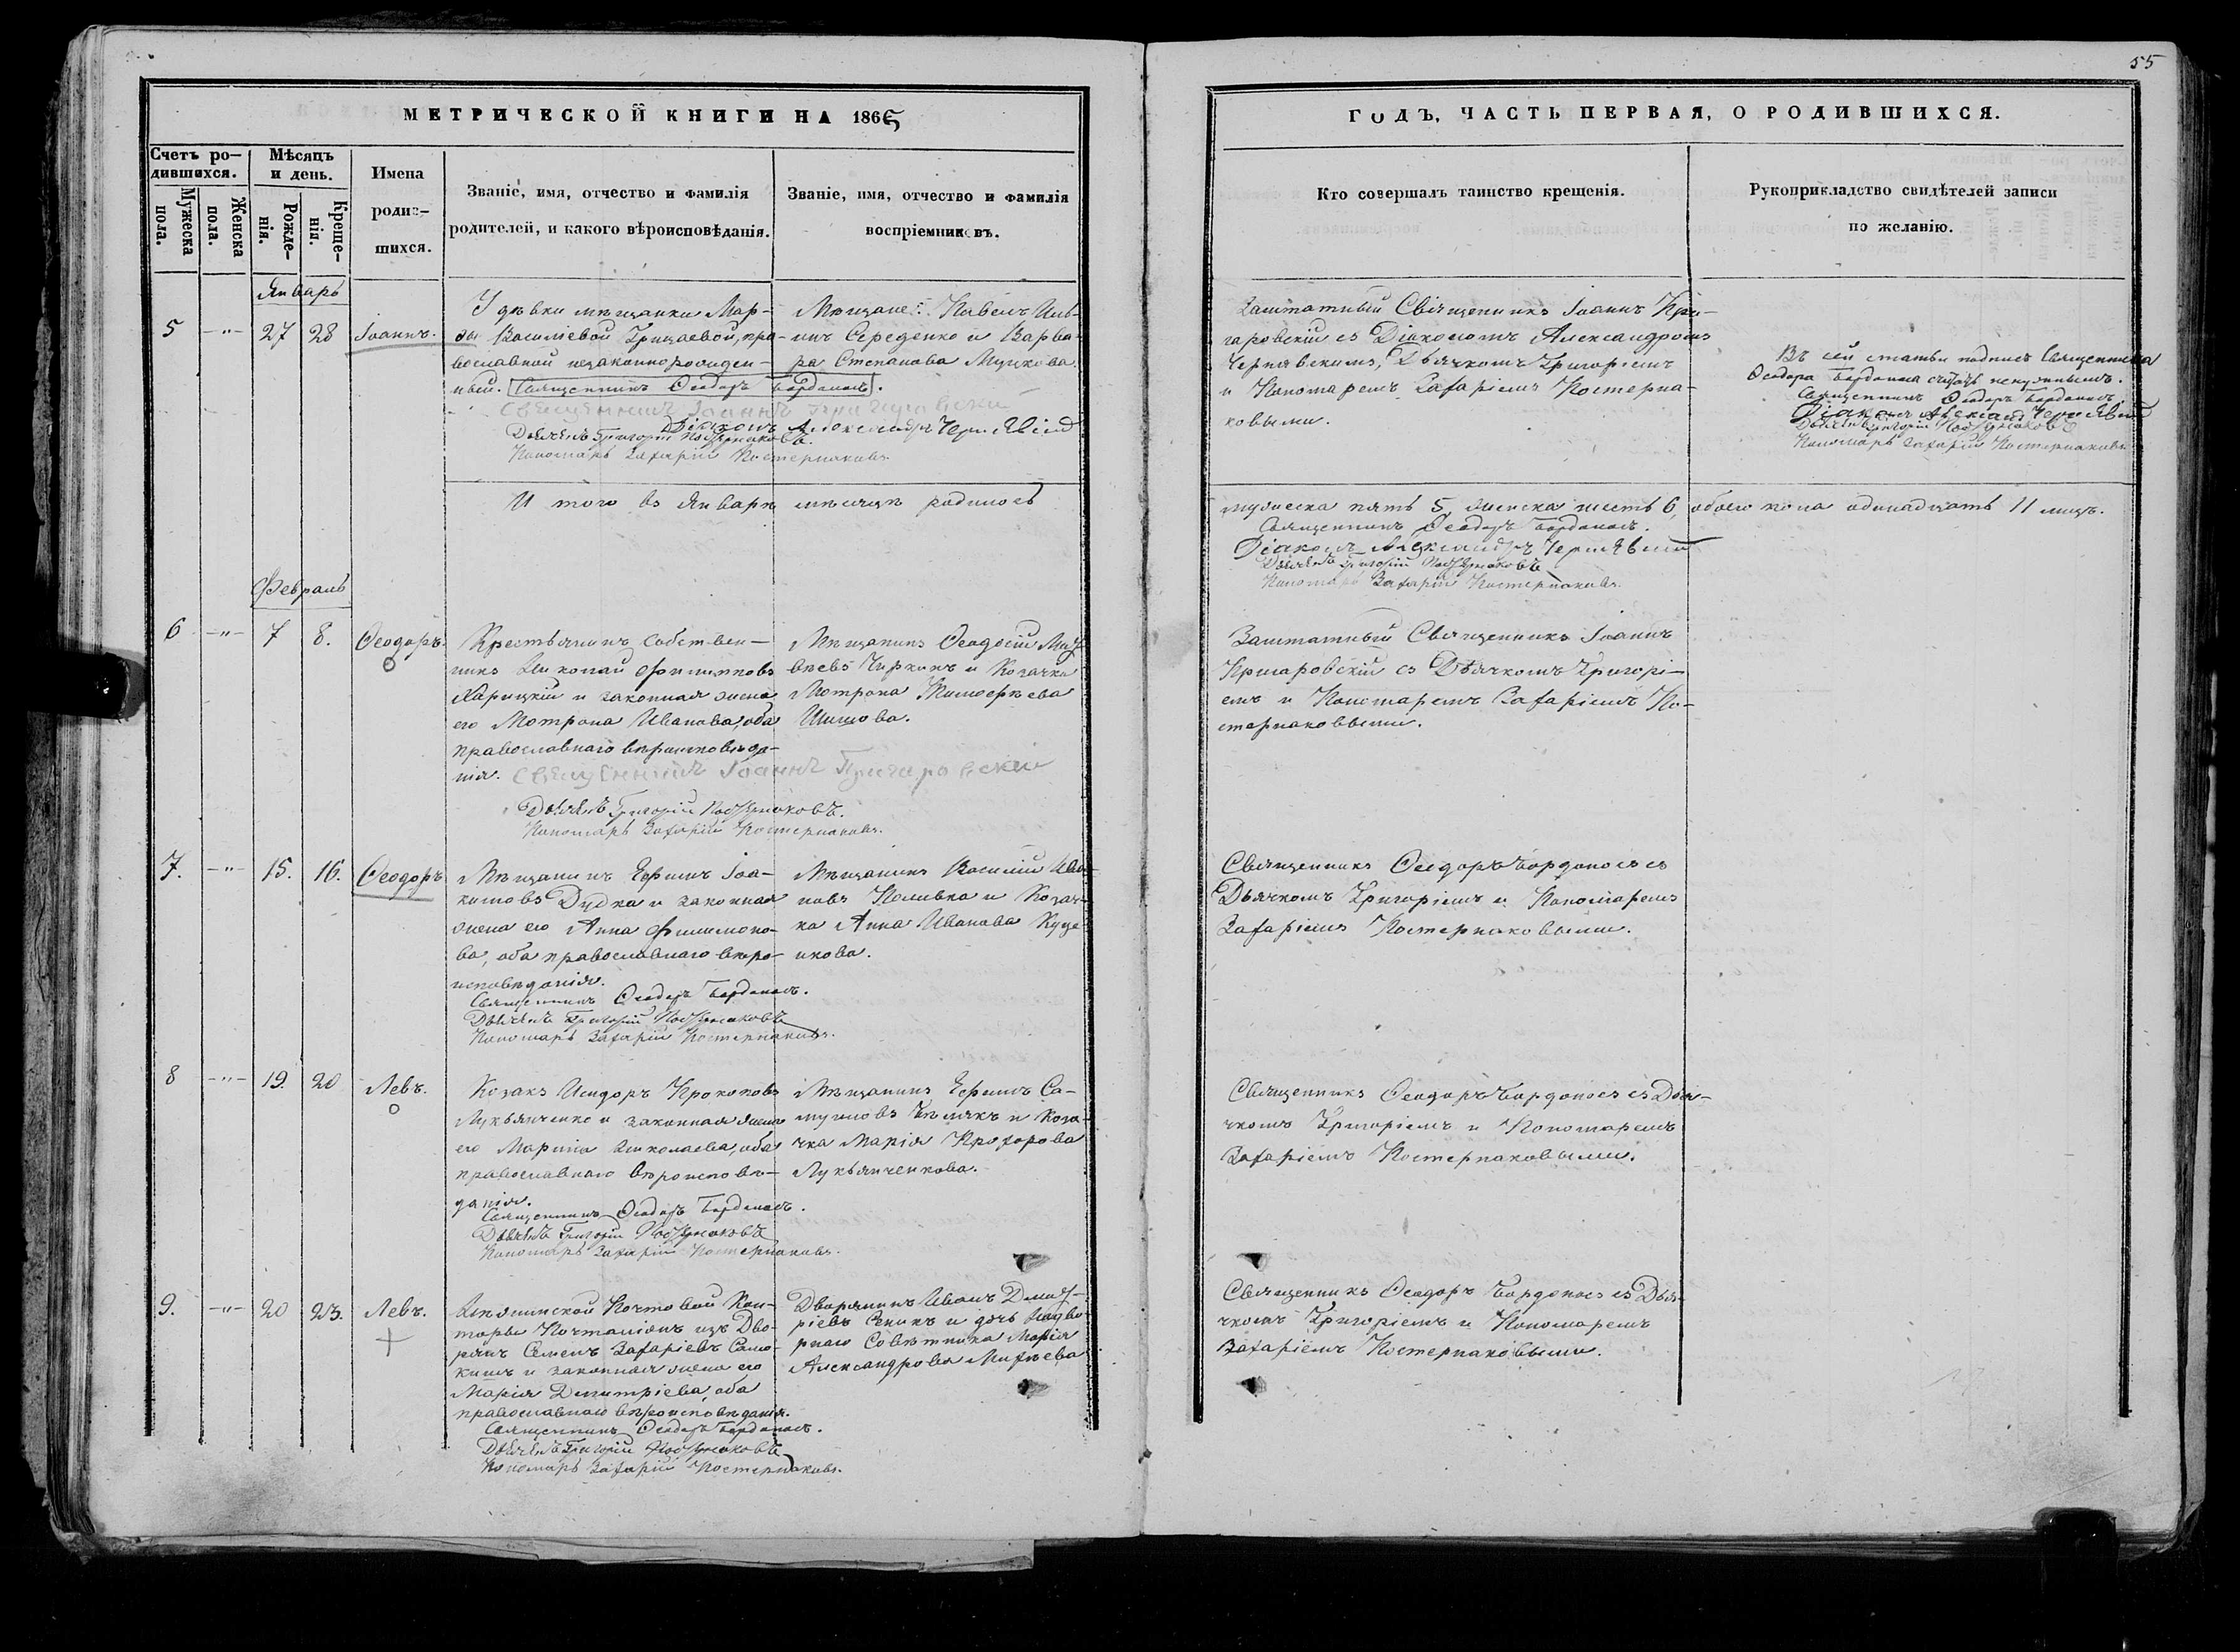 55
МЕТРИЧЕСКОЙ КНИГИ НА 1865
ГОДЪ, ЧАСТЬ ПЕРВАЯ, О РОДИВШИХСЯ.
Счетъ ро-
дившихся.
Мужеска
пола.
Женска
пола.
Мѣсяцъ
и день.
Рожде-
нія.
Креще-
нія.
Имена
родив-
шихся.
Званіе, имя, отчество и фамилія
родителей, и какого вѣроисповѣданія.
Званіе, имя, отчество и фамилія
воспріемниковъ.
Кто совершалъ таинство крещенія.
Рукоприкладство свидѣтелей записи
по желанію.
Январь
5 -"- 27 28 Іоаннъ.
У дѣвки мѣщанки Мар-
Васильевой Грицаевой, пра-
вославной незаконнорожден-
ный. Священникъ Ѳеодоръ Бордоносъ.
Священникъ Іоаннъ
Діаконъ Александръ Чернявскій
Дьячекъ Григорій Костерпаковъ.
Пономарь Захарій Костерпаковъ.
Мѣщане: Павелъ
Середенко и Варва-
ра Степанова
Заштатный Священникъ Іоаннъ При-
гаровскій съ Діакономъ Александромъ
Чернявскимъ, Дьячкомъ Григоріемъ
и Пономаремъ Захаріемъ Костерпа-
ковыми.
Въ сей статьи подпись Священника
Ѳеодора Бордоноса считать
Священникъ Ѳеодоръ Бордоносъ
Діаконъ Александръ Чернявскій
Дьячекъ Григорій Костерпаковъ
Пономарь Захарій Костерпаковъ.
И того въ Январѣ мѣсяцѣ родилось
мужеска пять 5, женска шесть 6, обоего пола одинадцать 11 лицъ.
Священникъ Ѳеодоръ Бордоносъ.
Діаконъ Александръ Чернявскій
Дьячекъ Григорій Костерпаковъ
Пономарь Захарій Костерпаковъ.
Февраль
6 -"- 7 8. Ѳеодоръ.
Крестьянинъ собствен-
никъ Николай Филипповъ
Харицкій и законная жена
его Мотрона Иванова, оба
православнаго вѣроисповѣда-
нія. Священникъ Іоаннъ Пригаровскій
Дьячекъ Григорій Костерпаковъ.
Пономарь Захарій Костерпаковъ.
Мѣщанинъ Ѳеодосій
Чиркинъ и Козачка
Мотрона Тимоѳеева
Шишова.
Заштатный Священникъ Іоаннъ
Пригаровскій съ Дьячкомъ Григорі-
емъ и Пономаремъ Захаріемъ Ко-
стерпаковыми.
7. -"- 15. 16. Ѳеодоръ
Мѣщанинъ Ефимъ Іоа-
кимовъ Дудка и законная
жена его Анна Филимоно-
ва, оба православнаго вѣро-
исповѣданія.
Священникъ Ѳеодоръ Бордоносъ.
Дьячекъ Григорій Костерпаковъ
Пономарь Захарій Костерпаковъ.
Мѣщанинъ Василій Ива-
новъ Поливка и Козач-
ка Анна Иванова Куце-
нкова.
Священникъ Ѳеодоръ Бордоносъ съ
Дьячкомъ Григоріемъ и Пономаремъ
Захаріемъ Костерпаковыми.
8 -"- 19. 20 Левъ.
Козакъ Исидоръ Прокоповъ
Лукьянченко и законная жена
его Марина Николаева, оба
православнаго вѣроисповѣ-
данія.
Священникъ Ѳеодоръ Бордоносъ.
Дьячекъ Григорій Костерпаковъ
Пономарь Захарій Костерпаковъ.
Мѣщанинъ Ефимъ Са-
муиловъ и Коза-
чка Марія Прохорова
Лукьянченкова.
Священникъ Ѳеодоръ Бордоносъ съ Дья-
чкомъ Григоріемъ и Пономаремъ
Захаріемъ Костерпаковыми.
9. -"- 20 23. Левъ.
Нѣжинской Почтовой Кон-
торы Почталіонъ изъ Дво-
рянъ Семенъ Захаріевъ Само-
кишъ и законная жена его
Марія Димитріева, оба
православнаго вѣроисповѣданія.
Священникъ Ѳеодоръ Бордоносъ.
Дьячекъ Григорій Костерпаковъ
Пономарь Захарій Костерпаковъ.
Дворянинъ Иванъ Димит-
ріевъ и дочь Надво-
рнаго Совѣтника Марія
Александрова Михѣева
Священникъ Ѳеодоръ Бордоносъ съ Дья-
чкомъ Григоріемъ и Пономаремъ
Захаріемъ Костерпаковыми.